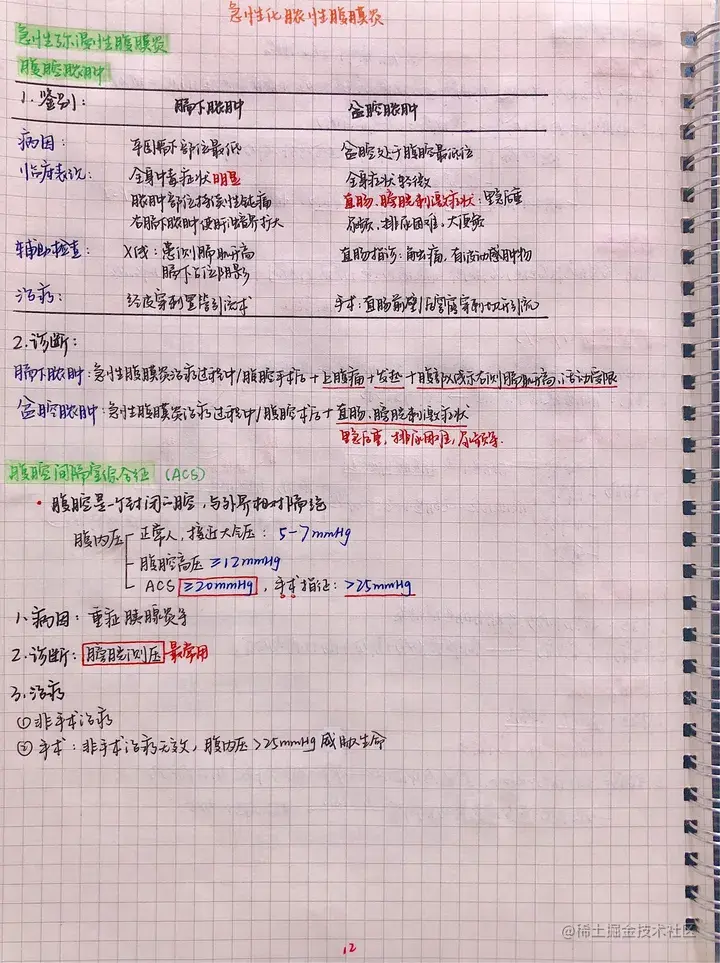 急性化脓性腹膜炎
急性弥漫性腹膜炎
腹腔脓肿
1. 鉴别: 膈下脓肿 盆腔脓肿
病因: 平卧膈下部位最低 盆腔处于腹腔最低位
临床表现: 全身中毒症状明显 全身症状轻微
脓肿部位持续性钝痛 直肠、膀胱刺激症状: 里急后重
右膈下脓肿使肝浊音界扩大 尿频、排尿困难、大便频
辅助检查: X线: 患侧膈肌升高 直肠指诊: 触痛, 有波动感肿物
膈下占位阴影
治疗: 经皮穿刺置管引流术 手术: 直肠前壁/后穹窿穿刺切开引流
2. 诊断:
膈下脓肿: 急性腹膜炎治疗过程中/腹腔手术后 + 上腹痛 + 发热 + 腹部X线示右侧膈肌升高、活动受限
盆腔脓肿: 急性腹膜炎治疗过程中/腹腔术后 + 直肠、膀胱刺激症状
里急后重, 排尿困难, 尿频等.
腹腔间隔室综合征 (ACS)
• 腹腔是一个封闭一腔, 与外界相对隔绝
腹内压 正常人, 接近大气压: 5-7mmHg
腹腔高压 ≥12mmHg
ACS ≥20mmHg, 手术指征: >25mmHg
1. 病因: 重症胰腺炎等
2. 诊断: 膀胱测压 最常用
3. 治疗
① 非手术治疗
② 手术: 非手术治疗无效, 腹内压 >25mmHg 威胁生命
12
@稀土掘金技术社区